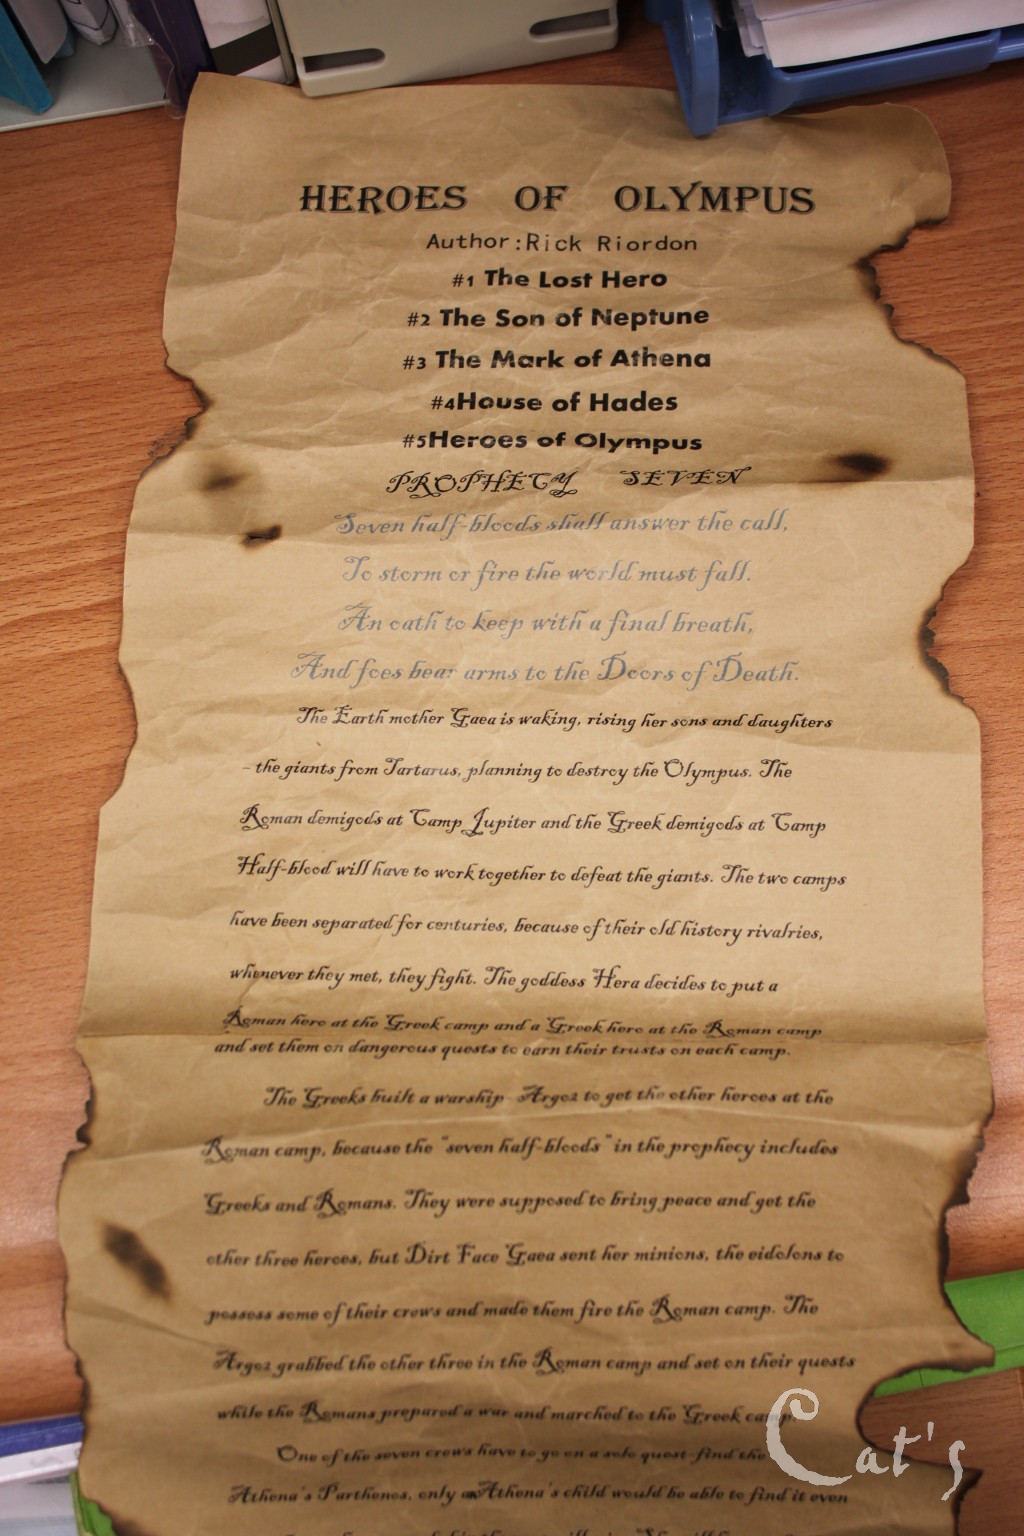 HEROES OF OLYMPUS
Author:Rick Riordon
#1 The Lost Hero
#2 The Son of Neptune
#3 The Mark of Athena
#4House of Hades
#5Heroes of Olympus
PROPHECY SEVEN
Seven half-bloods shall answer the call,
To storm or fire the world must fall.
An oath to keep with a final breath,
And foes bear arms to the Doors of Death.
The Earth mother Gaea is waking, rising her sons and daughters
- the giants from Tartarus, planning to destroy the Olympus. The
Roman demigods at Camp Jupiter and the Greek demigods at Camp
Half-blood will have to work together to defeat the giants. The two camps
have been separated for centuries, because of their old history rivalries,
whenever they met, they fight. The goddess Hera decides to put a
Roman hero at the Greek camp and a Greek hero at the Roman camp
and set them on dangerous quests to earn their trusts on each camp.
The Greeks built a warship- Argo2 to get the other heroes at the
Roman camp, because the "seven half-bloods" in the prophecy includes
Greeks and Romans. They were supposed to bring peace and get the
other three heroes, but Dirt Face Gaea sent her minions, the eidolons to
possess some of their crews and made them fire the Roman camp. The
Argo2 grabbed the other three in the Roman camp and set on their quests
while the Romans prepared a war and marched to the Greek camp.
One of the seven crews have to go on a solo quest-find the
Athena's Parthenos, only a Athena's child would be able to find it even
Cat's